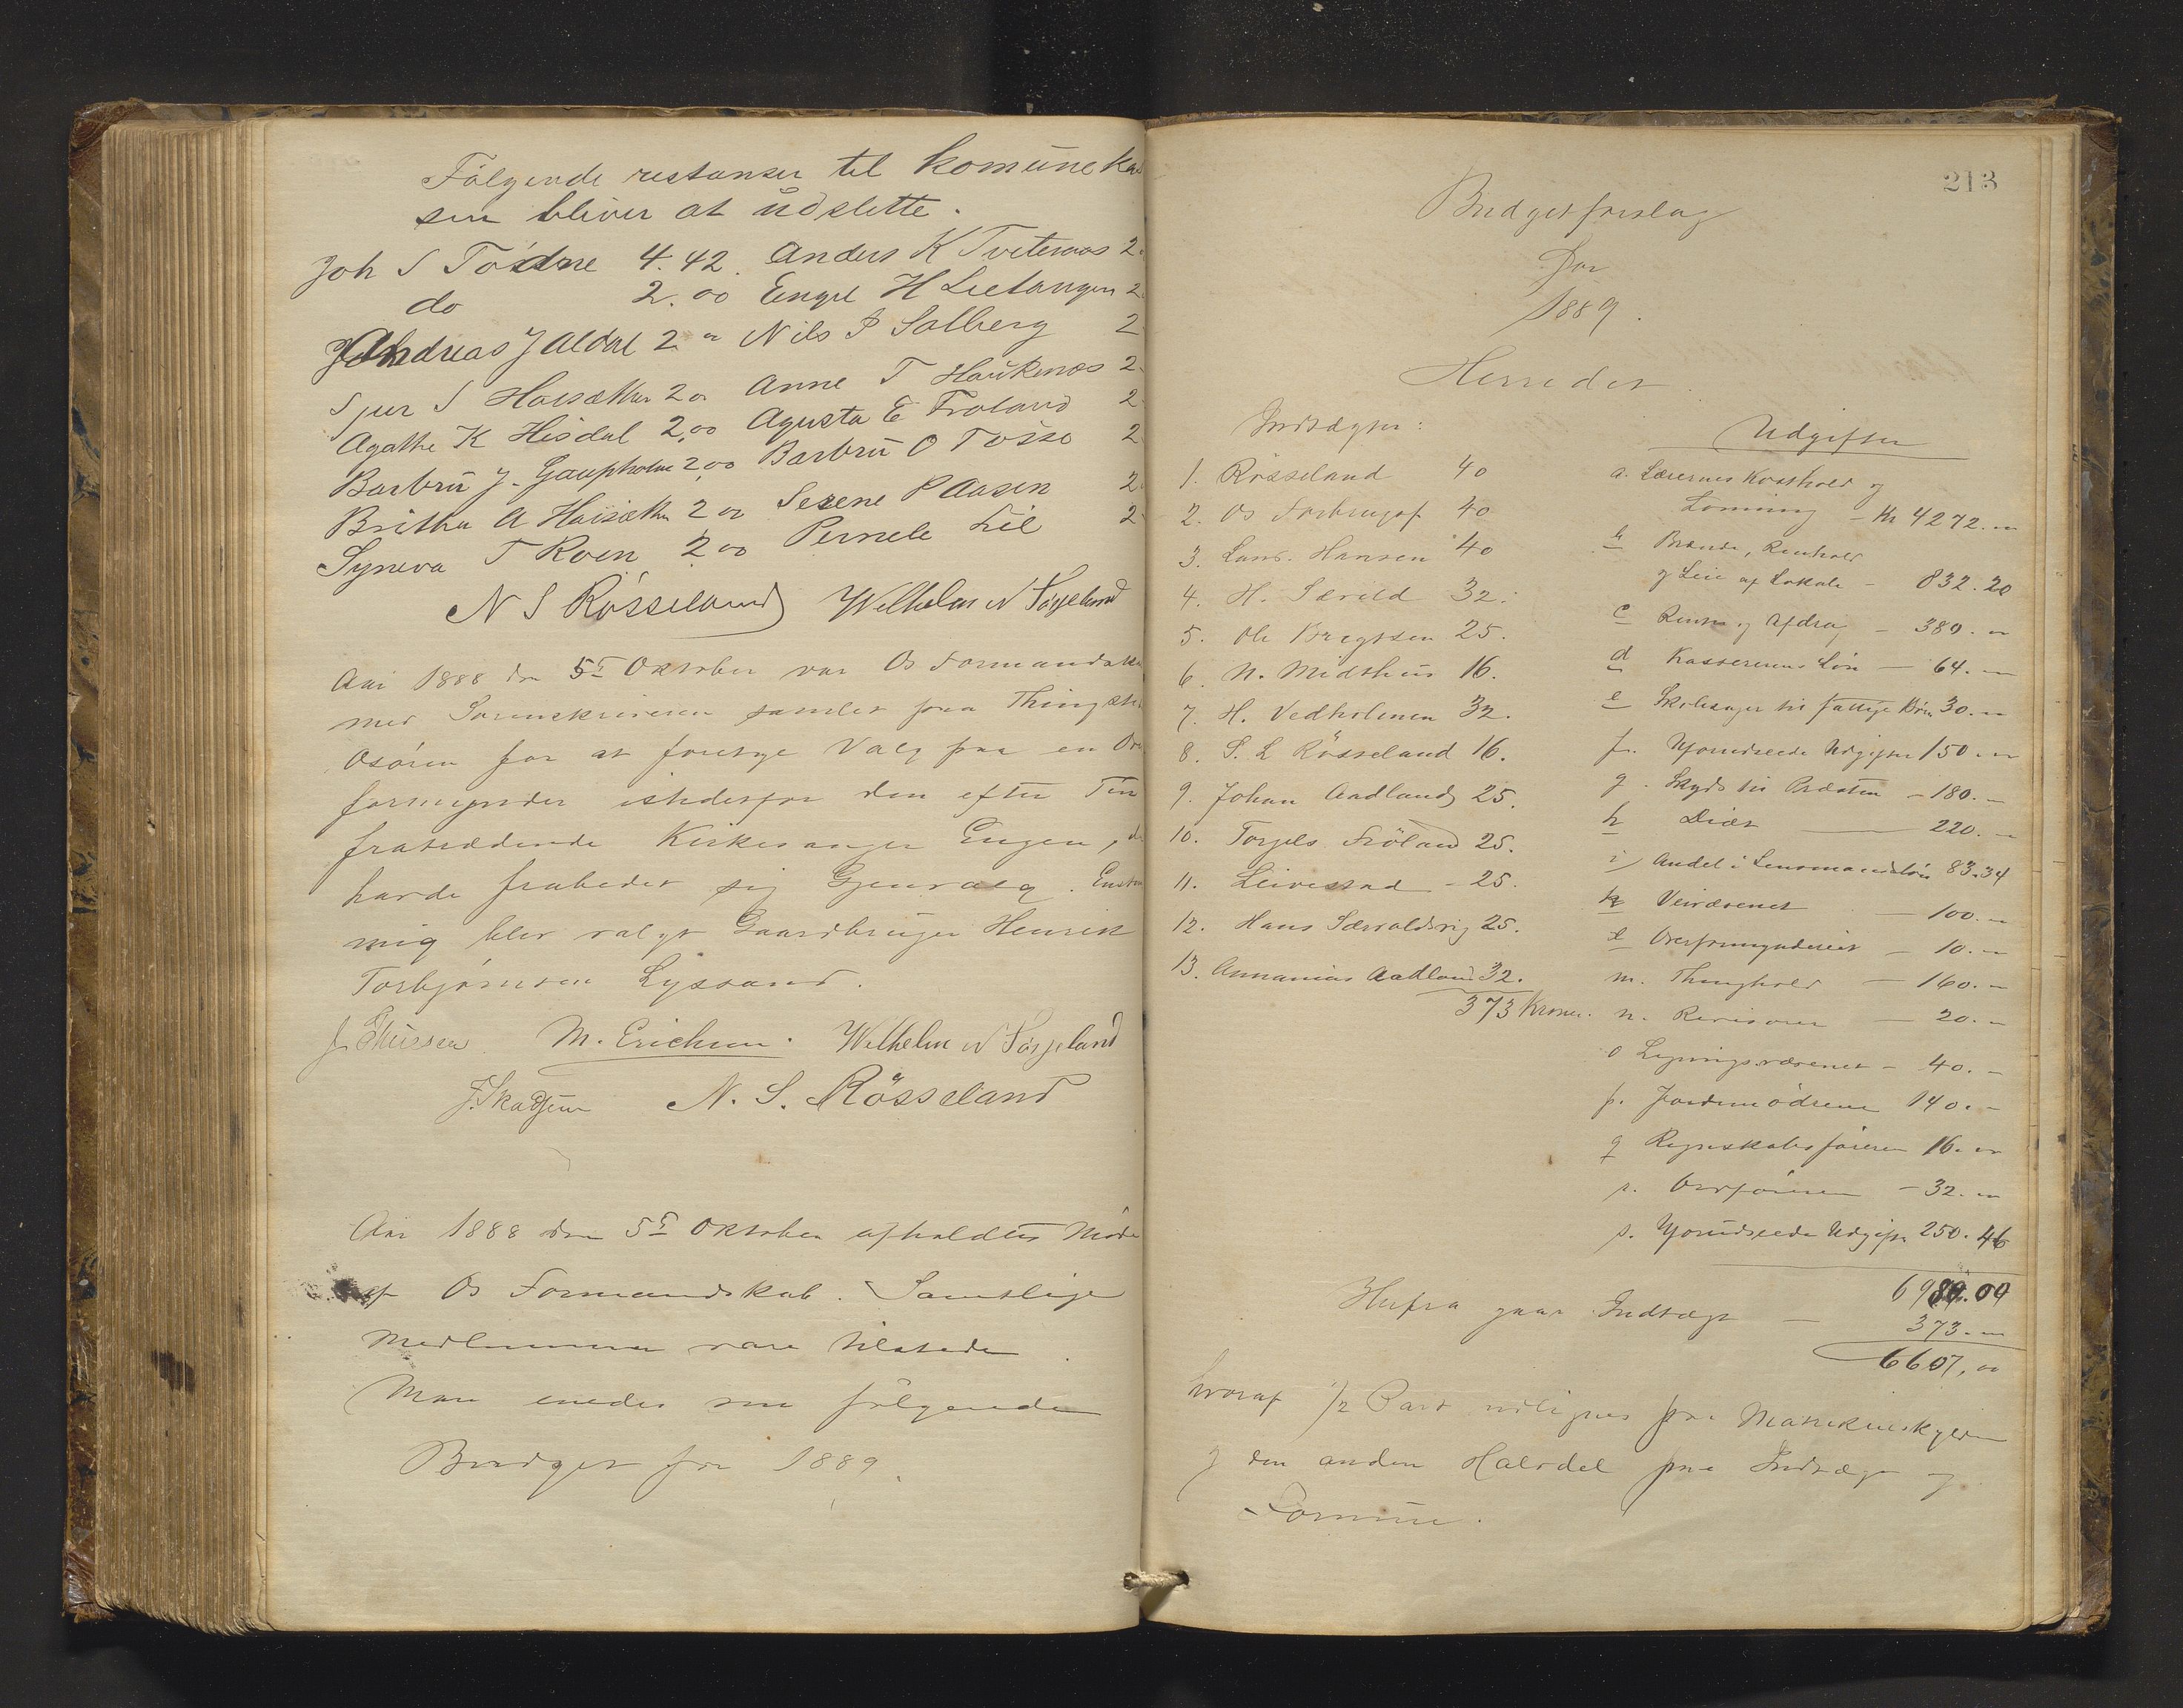 Følgende restanser til komunekas
sen bliver at udslette.
Joh S Tøsdne 4.42. Anders K Tviteraas 2.
do 2.00 Engel H Lietangen 2
Andreas J Aldal 2 00 Nils P Solberg 2
Sjur S Hauisæther 2 00 Anne T Haukenæs 2
Agathe K Hisdal 2,00 Agusta E Frøland 2
Barbru J. Gaupholm 2,00 Barbru O Tøsse 2
Britha A Hauisæth 2 00 Serene P Aasen 2
Syneva T Roen 2 00 Pernele Lil 2
N S Røsseland Wilhelm N Søfteland
Aar 1888 den 5te Oktober var Os Formandska
med Sorenskriveren samlet paa Thingste
Osøren for at foretage Valg paa en Ov
formynder istedetfor den efter Tur
fratrædende Kirkesanger Engen, de
havde frabedet sig Gjenvalg. Enstem
mig blev valgt Gaardbruger Henrik
Torbjørnsen Lyssand.
M. Erichsen. Wilhelm N Søfteland
N. S. Røsseland
Aar 1888 den 5te Oktober afholdtes Møde
af Os Formandskab. Samtlige
Medlemmer vare tilstede.
Man enedes om følgende
Budget for 1889.
213
Budgetforslag
For
1889.
Herredet.
Indtægter:
1. Røsseland 40
2. Os Forbrugsf. 40
3. Lars. Hansen 40
4. H. Særvild 32.
5. Ole Brygtsen 25.
6. N. Midthus 16.
7. H. Vedholmen 32.
8. S. L Røsseland 16.
9. Johan Aadland 25.
10. Torgils Frøland 25.
11. Leivestad - 25.
12. Hans Særvoldsvig 25.
13. Annanias Aadland 32.
373 Kroner.
Udgifter
a. Lærernes Kosthold og
Lønning - Kr 4272. 00
b Brænde, Renhold
og Leie af Lokale - 832.20
c Renter og Afdrag - 380. 00
d Kassererens Løn - 64. 00
e Skolesager til fattige Børn 30. 00
f. Uforudseede Udgifter 150. 00
g. Skyds til Præsten - 180. -
h Diæt 220. 00
i Andel i Lensmandsløn 83.34
k Veivæsenet - 100. 00
l Overformynderiet - 10. 00
m. Thinghold - 160. 00
n. Revisoren - 20. 00
o Ligningsvæsenet - 40. -
p. Jordemødrene 140. -
q Regnskabsføreren 16. 00
r. Ordføreren - 32. 00
s. Uforudseede Udgifter 250.46
6980.00
Herfra gaar Indtægt - 373. 00
6607,00
hvoraf 1/2 Part udlignes paa Matrikulskylden
og den anden Halvdel paa Indtægt og
Formue.